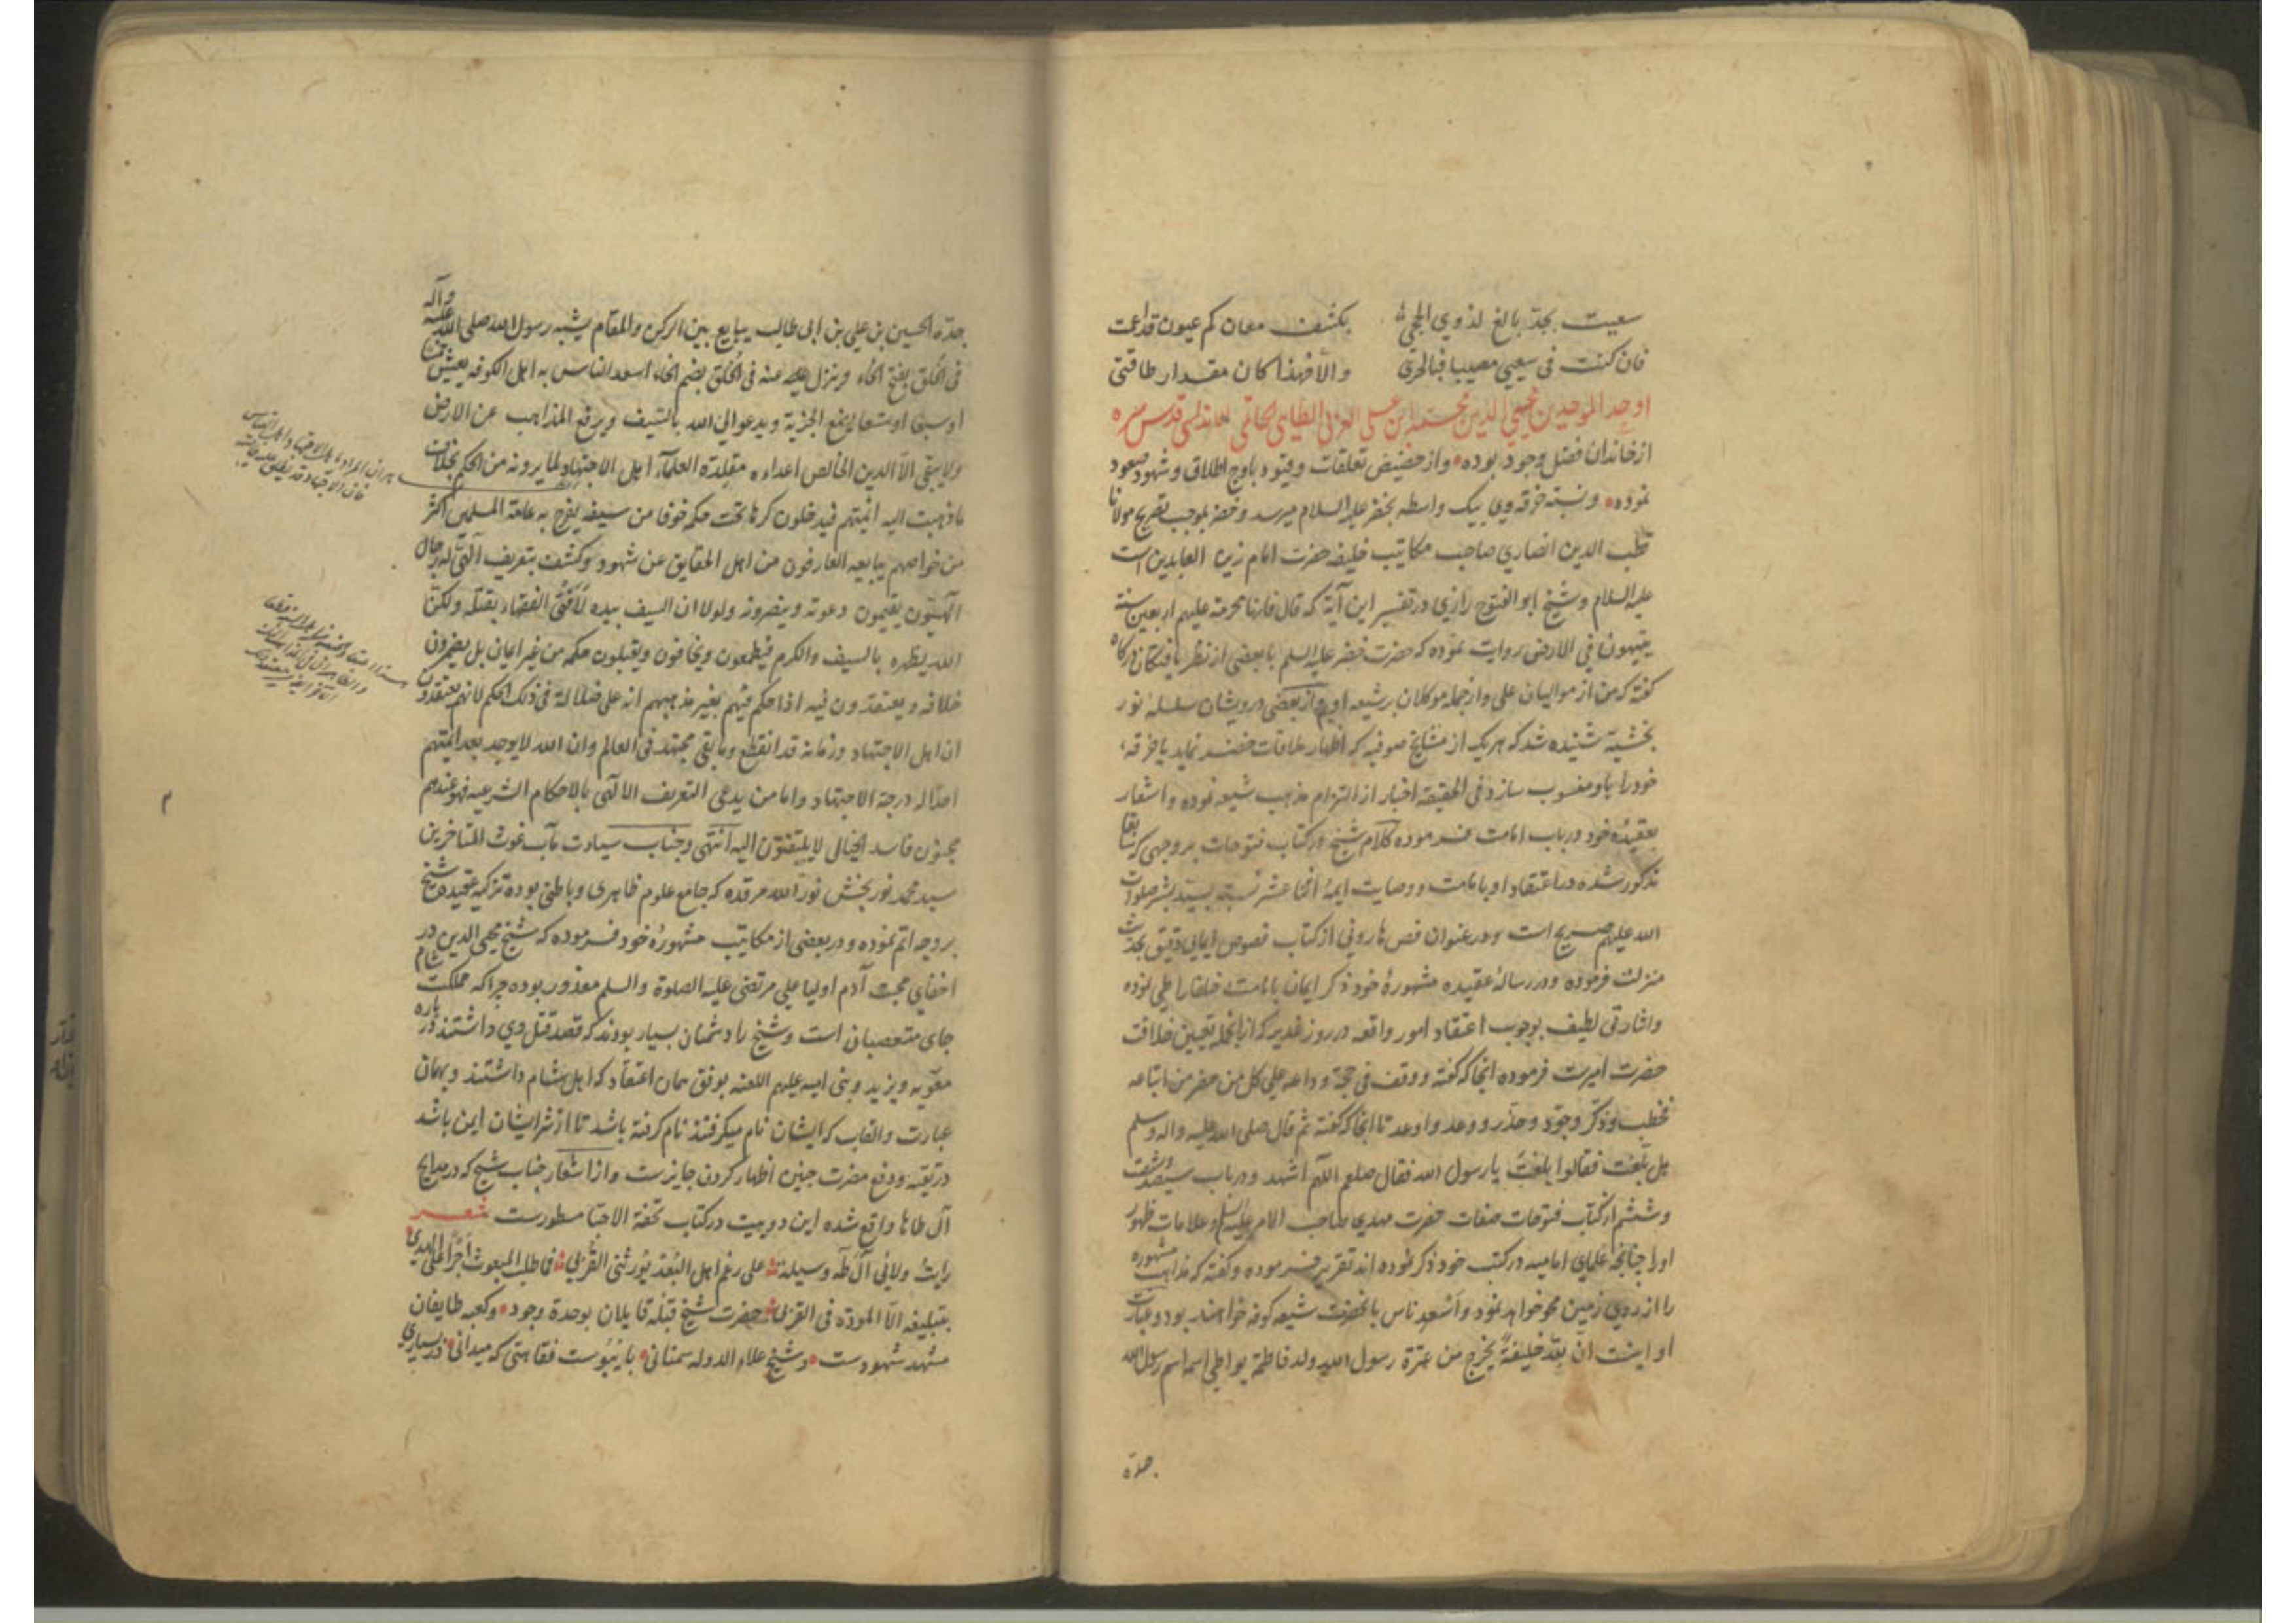 سعیت بجدّ بالغ لذوي الحجی بکشف معان کم عیون قداعمت
فان کنت فی سعیی مصیبا فبالحری والّا فهذا کان مقدار طاقتی
اوحد الموحدین محیی الدین محمد ابن علی العربی الطایی الحاتمی الاندلسی قدس سره
از خاندان فضل وجود بوده و از حضیض تعلقات و قیود باوج اطلاق و شهود صعود
نموده و نسبت خرقه وی بیک واسطه بخضر علیه السلام میرسد و خضر بموجب تصریح مولانا
قطب الدین انصاری صاحب مکاتیب خلیفه حضرت امام زین العابدین است
علیه السلام و شیخ ابو الفتوح رازی در تفسیر این آیة که قال فانها محرمة علیهم اربعین سنة
یتیهون فی الارض روایت نموده که حضرت خضر علیه السلم با بعضی از نظر یافتکان درکاه
کفته که من از موالیان علی و از جمله موکلان بر شیعه اویم و از بعضی درویشان سلسلهٔ نور
بخشیة شنیده شد که هر یک از مشایخ صوفیه که اظهار ملاقات خضر نماید یا خرقه
خود را باو منسوب سازد فی الحقیقه اخبار از التزام مذهب شیعه نموده و اشعار
بعقیدهٔ خود در باب امامت فرموده کلام شیخ در کتاب فتوحات بر وجهی که سابقا
مذکور شده در اعتقاد او بامامت و وصایت ایمهٔ اثنا عشر نسبت بسید بشر صلوات
الله علیهم صریح است و در عنوان فص هارونی از کتاب فصوص ایمایی دقیق بحدیث
منزلت فرموده و در رسالهٔ عقیده مشهورهٔ خود ذکر ایمان بامامت خلفا را طی نموده
و اشارتی لطیف بوجوب اعتقاد امور واقعه در روز غدیر که از انجمله تعیین خلافت
حضرت امیرست فرموده انجا که کفته و وقف فی حجة وداعه علی کل من حضر من اتباعه
فخطب و ذکّر وخوّف و حذّر و وعد و اوعد تا انجا که کفته ثم قال صلی الله علیه و اله و سلم
هل بلّغت فقالوا بلغت یا رسول الله فقال صلعم اللّهم اشهد و در باب سیصد و شصت
و ششم از کتاب فتوحات صفات حضرت مهدی صاحب الامر علیه السلم و علامات ظهور
اورا چنانچه علمای امامیه در کتب خود ذکر نموده اند تقریر فرموده و کفته که مذاهب مشهوره
را از روی زمین محو خواهد نمود و اسعد ناس بانحضرت شیعه کوفه خواهند بود و عبارت
او اینست انّ لله خلیفةً یخرج من عترة رسول الله ولد فاطمة یواطی اسمه اسم رسول الله
جدّه
جدّه الحسین بن علی بن ابی طالب یبایع بین الرکن والمقام یشبه رسول الله صلی الله علیه وآله
فی الخَلق بفتح الخاء وینزل عنه فی الخُلق بضم الخاء اسعد الناس به اهل الکوفه یعیش خمسا
او سبعا او تسعا یضع الجزیة ویدعو الی الله بالسیف ویرفع المذاهب عن الارض
ولا یبقی الّا الدین الخالص اعداءه مقلدة العلماء اهل الاجتهاد لما یرونه من الحکم بخلاف
ما ذهبت الیه ائمتهم فیدخلون کرها تحت حکمه خوفا من سیفه یفرح به عامّة المسلمین اکثر
من خواصهم یبایعه العارفون من اهل الحقایق عن شهود وکشف بتعریف آلهیّ له رجال
آلهیّون یقیمون دعوته وینصرونه ولولا ان السیف بیده لَافتی الفقهاء بقتله ولکن
الله یظهره بالسیف والکرم فیطمعون ویخافون ویقبلون حکمه من غیر ایمان بل یضمرون
خلافه ویعتقدون فیه اذا حکم فیهم بغیر مذهبهم انه علی ضلالة فی ذلک الحکم لانهم یعتقدون
ان اهل الاجتهاد وزمانه قد انقطع وما بقی مجتهد فی العالم وان الله لا یوجد بعد ائمتهم
احدا له درجة الاجتهاد واما من یدعی التعریف الالهی بالاحکام الشرعیه فهو عندهم
مجنون فاسد الخیال لا یلتفتون الیه انتهی و جناب سیادت مآب غوث المتاخرین
سید محمد نوربخش نوّر الله مرقده که جامع علوم ظاهری و باطنی بوده تزکیه عقیدهٔ شیخ
بر وجه اتم نموده و در بعضی از مکاتیب مشهورهٔ خود فرموده که شیخ محیی الدین در
اخفای محبت آدم اولیا علی مرتضی علیه الصلوة والسلم معذور بوده چرا که مملکت شام
جای متعصبان است و شیخ را دشمنان بسیار بودند که قصد قتل وی داشتند در باره
معویه و یزید و بنی امیه علیهم اللعنه بوفق همان اعتقاد که اهل شام داشتند و بهمان
عبارت و القاب که ایشان نام میکرفتند نام کرفته باشد تا از شر ایشان ایمن باشد
در تقیّه و دفع مضرت چنین اظهار کردن جایزست و از اشعار جناب شیخ که در مدایح
آل طاها واقع شده این دو بیت در کتاب تحفة الاحبا مسطورست شعر
رایتُ ولائی آل طٰه وسیلة علی رغم اهل البُعد یُورثنی القُربی فما طلب المبعوث اجرًا علی الهدی
بتبلیغه الّا المودّة فی القربی حضرت شیخ قبله قایلان بوحدة وجود و کعبه طایفان
مشهد شهودست و شیخ علاء الدوله سمنانی با یبوست فقاهتی که میدانی در بسیاری